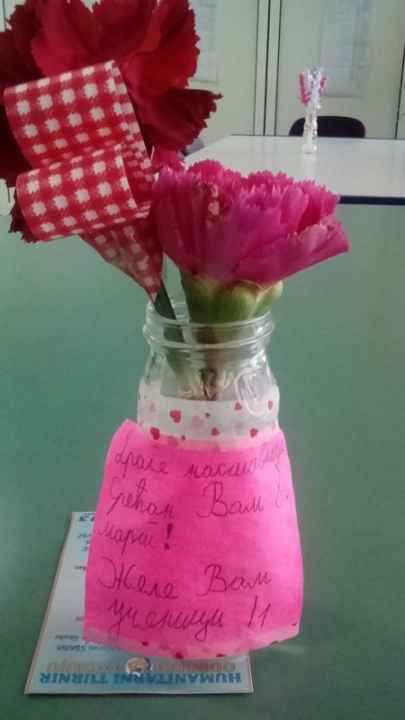 Драге
Срећан Вам 8.
март!
Желе Вам
ученици !!
HUMANITARNI TURNIR